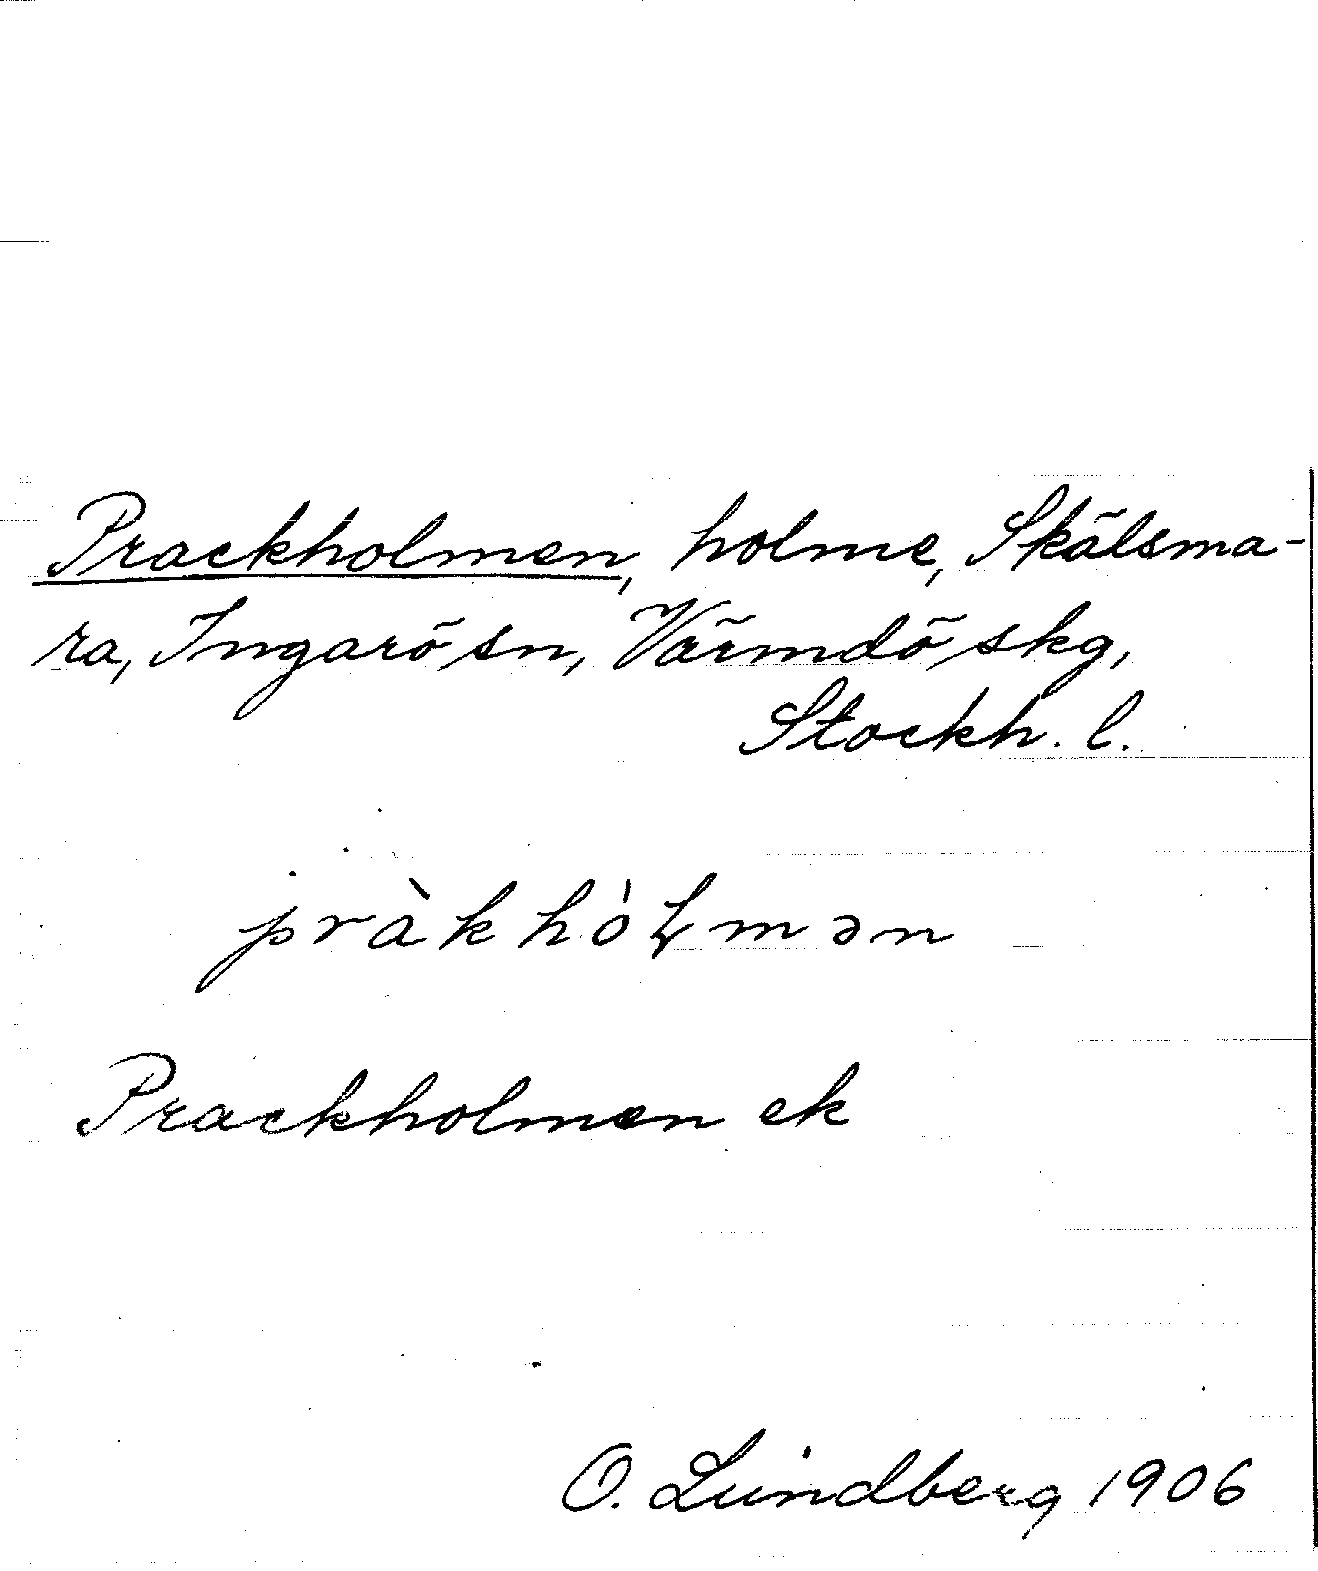 Prackholmen, holme, Skälsma-
ra, Ingarö sn, Värmdö skg,
Stockh. l.
pràkhòɫmən
Prackholmen ek
O. Lundberg 1906